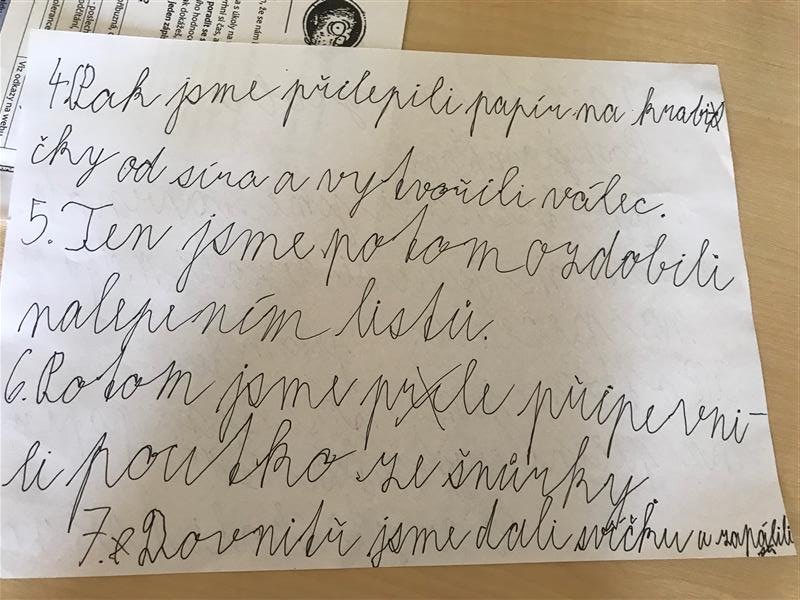 4. Pak jsme přilepili papír na krabi
čky od sýra a vytvořili válec.
5. Ten jsme potom ozdobili
nalepením listů.
6. Potom jsme přile připevni-
li poutko ze šnůrky.
7. Dovnitř jsme dali svíčku a zapálili
Viz odkazy na webu